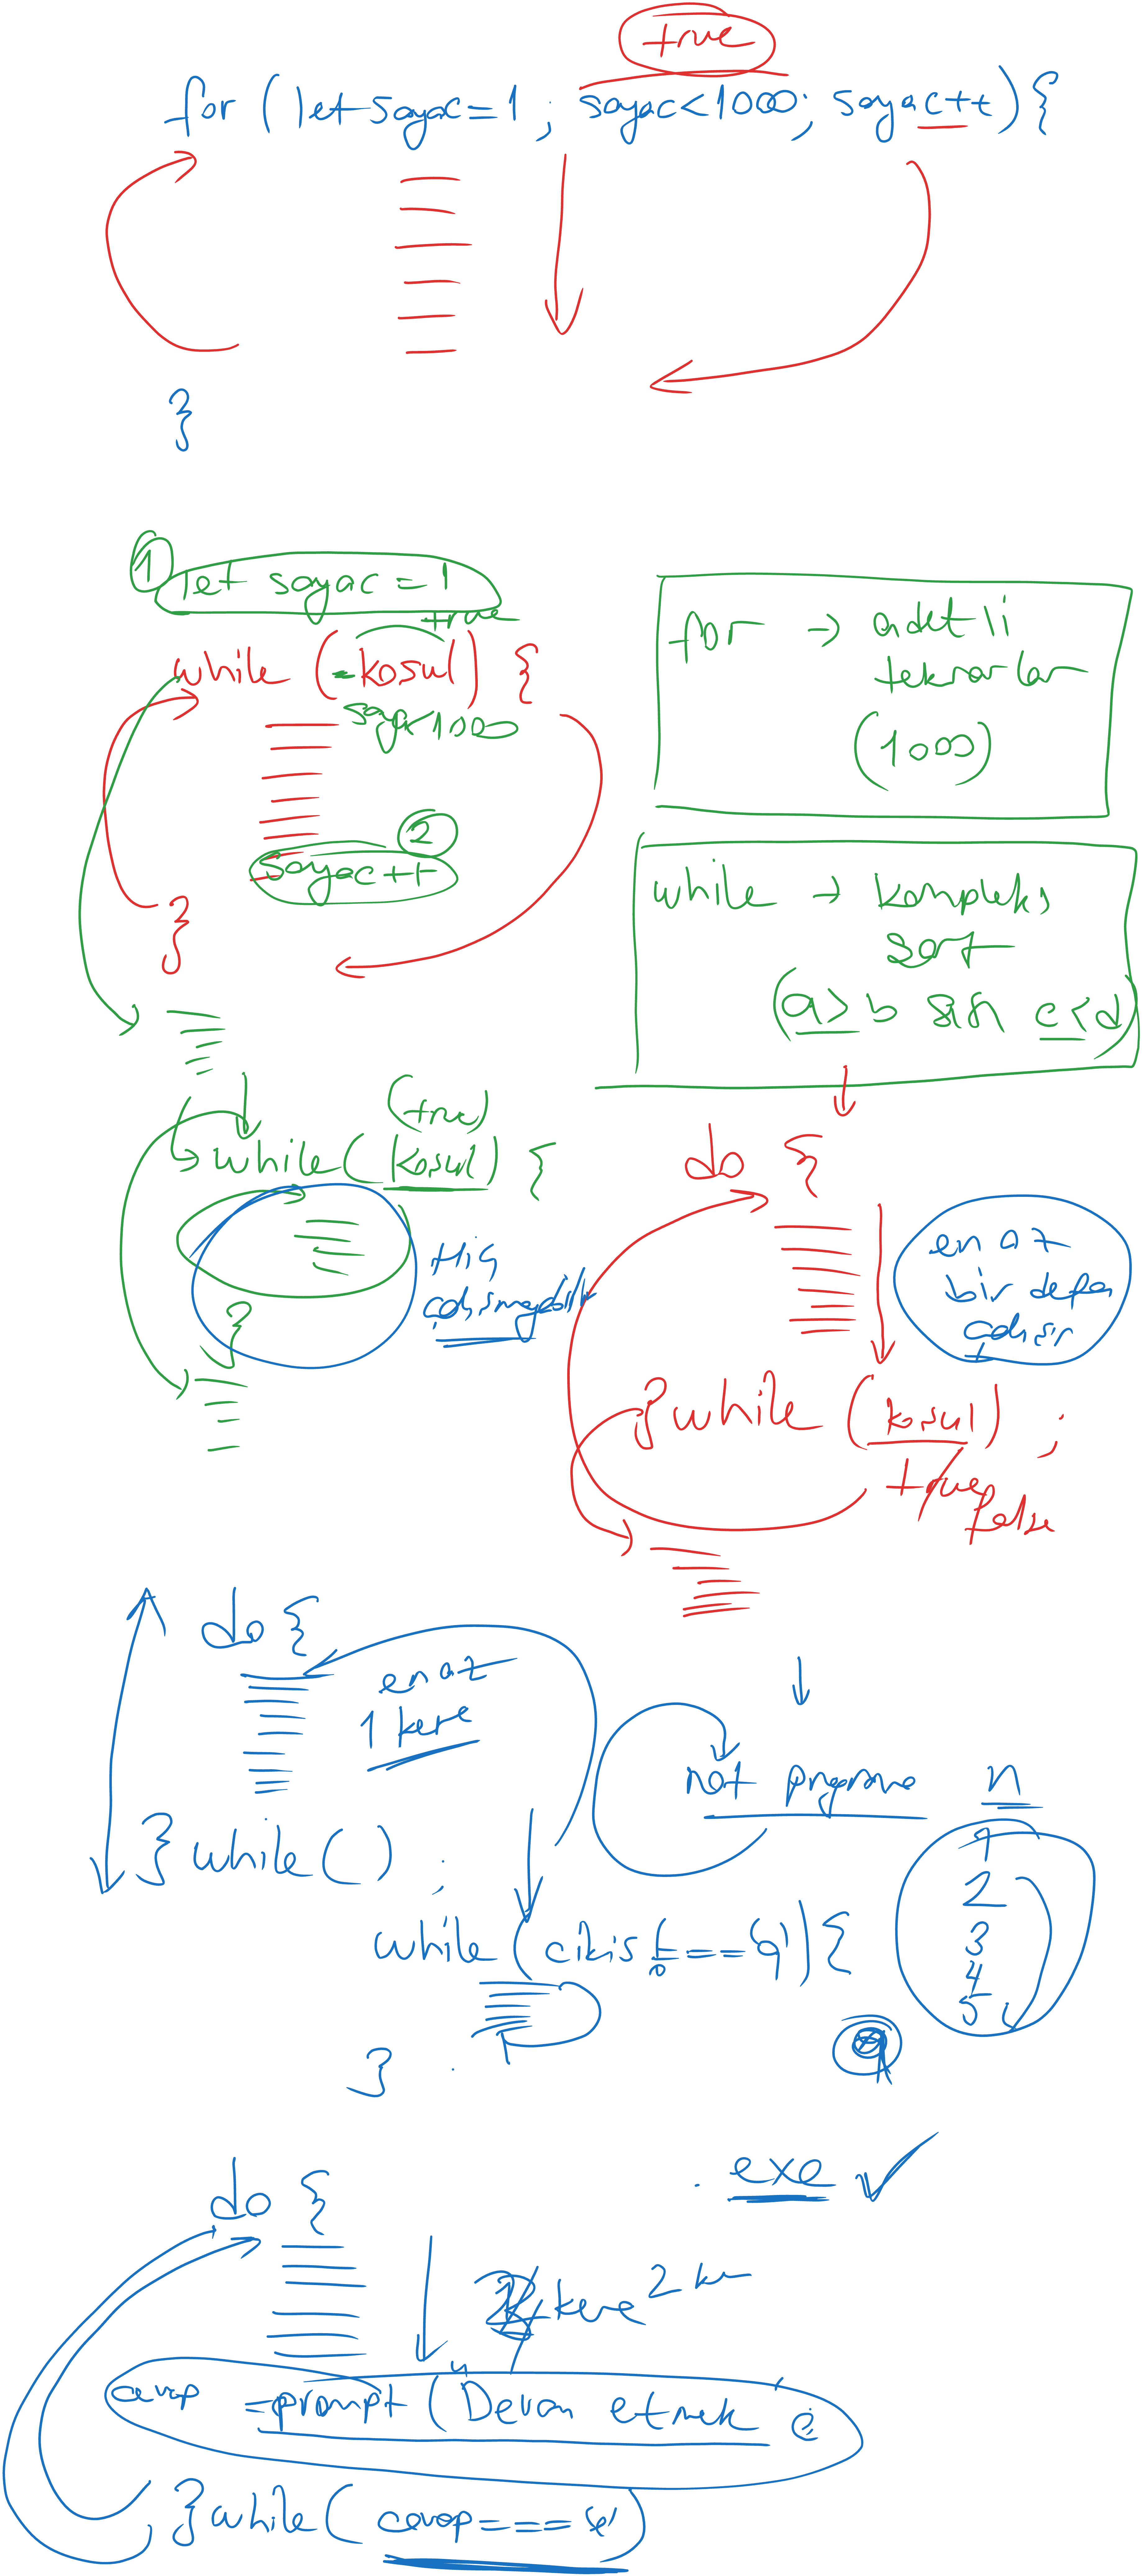 true
for (let sayac=1; sayac<1000; sayac++){
}
1
let sayac = 1
true
while (kosul) {
sayac<1000
2
sayac++
}
for → adetli
tekrarlar
(1000)
while → kompleks
sart
(a>b && c<d)
(true)
while (kosul) {
Hiç
}
do {
en az
bir defa
çalışır
} while (kosul) ;
true
false
do {
en az
1 kere
} while () ;
not programı n
1
2
3
4
5
while (cikis !=== q) {
q
}
.exe ✓
do {
kere 2
cevap = prompt ("Devam etmek
} while (cevap === e)